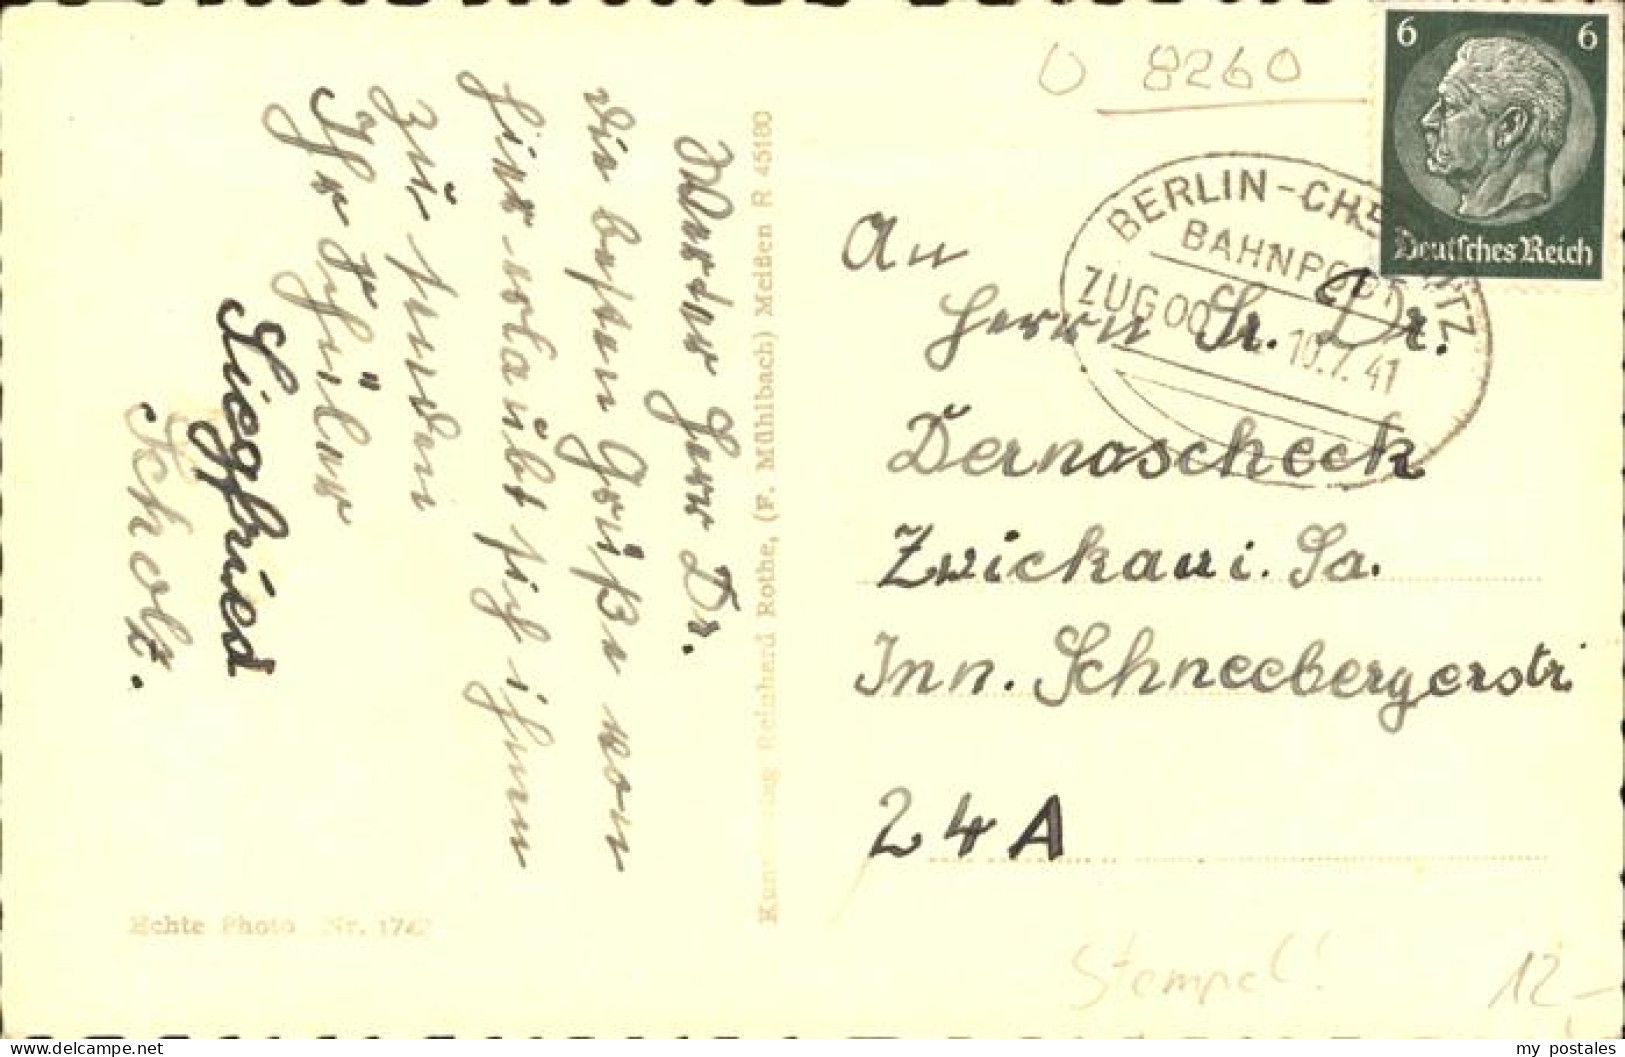 Werter Herr Dr.
die besten Grüße von
hier erlaubt sich ihnen
zu senden
Ihr Schüler
Siegfried
Scholz.
Reinhard Rothe, (F. Mühlbach) Meißen R 45180
Echte Photo Nr.
8260
6 6
Deutsches Reich
BERLIN-CHEMNITZ
BAHNPOST
ZUG
10.7.41
An
Herrn St. Dr.
Dernoscheck
Zwickau i. Sa.
Inn. Schneebergerstr.
24A
Stempel!
12,-
my_postales